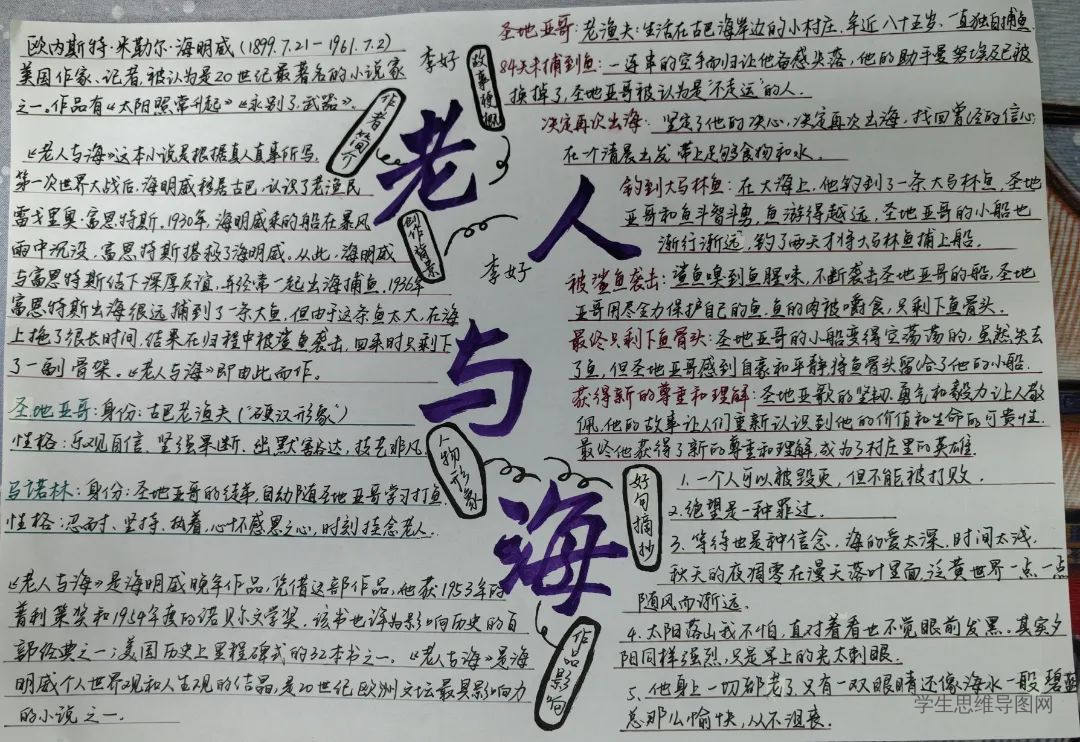 欧内斯特·米勒尔·海明威(1899.7.21-1961.7.2)
美国作家、记者,被认为是20世纪最著名的小说家
之一。作品有《太阳照常升起》《永别了,武器》。
作者简介
李好
故事梗概
老
人
与
海
《老人与海》这本小说是根据真人真事所写。
第一次世界大战后,海明威移居古巴,认识了老渔民
雷戈里奥·富恩特斯。1930年,海明威乘的船在暴风
雨中沉没,富恩特斯搭救了海明威。从此,海明威
与富恩特斯结下深厚友谊,并经常一起出海捕鱼,1936年
富恩特斯出海很远捕到了一条大鱼,但由于这条鱼太大,在海
上拖了很长时间,结果在归程中被鲨鱼袭击,回来时只剩下
了一副骨架。《老人与海》即由此而作。
创作背景
李好
圣地亚哥:身份:古巴老渔夫("硬汉形象")
性格:乐观自信、坚强果断、幽默豁达,技老非风
马诺林:身份:圣地亚哥的徒弟,自幼随圣地亚哥学习打鱼.
性格:忍耐、坚持、执着,心怀感恩之心,时刻挂念老人.
人物形象
《老人与海》是海明威晚年作品,凭借这部作品,他获1953年的
普利策奖和1954年度的诺贝尔文学奖。该书也评为影响历史的百
部经典之一;美国历史上里程碑式的32本书之一。《老人与海》是海
明威个人世界观和人生观的结晶,是20世纪欧洲文坛最具影响力
的小说之一.
作品影响
圣地亚哥:老渔夫:生活在古巴海岸边的小村庄.年近八十五岁、一直独自捕鱼
84天未捕到鱼:一连串的空手而归让他备感失落,他的助手曼努埃及已被
换掉了,圣地亚哥被认为是"不走运"的人.
决定再次出海:坚定了他的决心,决定再次出海,找回曾经的信心
在一个清晨出发,带上足够食物和水.
钓到大马林鱼:在大海上,他钓到了一条大马林鱼,圣地
亚哥和鱼斗智斗勇,鱼游得越远,圣地亚哥的小船也
渐行渐远,钓了两天才将大马林鱼捕上船.
被鲨鱼袭击:鲨鱼嗅到鱼腥味,不断袭击圣地亚哥的船,圣地
亚哥用尽全力保护自己的鱼,鱼的肉被嚼食,只剩下鱼骨头.
最终只剩下鱼骨头:圣地亚哥的小船变得空荡荡的,虽然失去
了鱼,但圣地亚哥感到自豪和平静将鱼骨头留给了他的小船.
获得新的尊重和理解:圣地亚歌的坚韧、勇气和毅力让人敬
佩,他的故事让人们重新认识到他的价值和生命的可贵性.
最终他获得了新的尊重和理解,成为了村庄里的英雄.
好句摘抄
1.一个人可以被毁灭,但不能被打败.
2.绝望是一种罪过.
3.等待也是种信念,海的爱太深,时间太浅.
秋天的夜凋零在漫天落叶里面,泛黄世界一点一点
随风而渐远.
4.太阳落山我不怕,直对着看也不觉眼前发黑.其实夕
阳同样强烈,只是早上的光太刺眼.
5.他身上一切都老了,只有一双眼睛还像海水一般碧蓝
总那么愉快,从不沮丧.
学生思维导图网